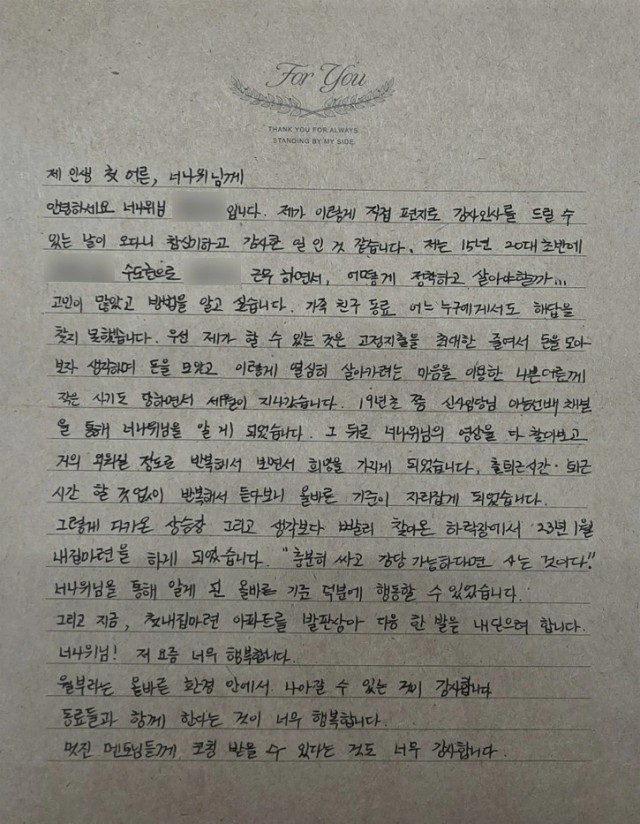 For You
THANK YOU FOR ALWAYS
STANDING BY MY SIDE
제 인생 첫 어른, 너나위님께
안녕하세요 너나위님 입니다. 제가 이렇게 직접 편지로 감사인사를 드릴 수
있는 날이 오다니 참 신기하고 감사한 일 인 것 같습니다. 저는 15년 20대 초반에
수도권으로 근무 하면서, 어떻게 정착하고 살아야할까...
고민이 많았고 방법을 알고 싶습니다. 가족 친구 동료 어느 누구에게서도 해답을
찾지 못했습니다. 우선 제가 할 수 있는 것은 고정지출을 최대한 줄여서 돈을 모아
보자 생각하며 돈을 모았고 이렇게 열심히 살아가려는 마음을 이용한 나쁜어른께
작은 사기도 당하면서 세월이 지나갔습니다. 19년초 쯤 신사임당님 채널
을 통해 너나위님을 알 게 되었습니다. 그 뒤로 너나위님의 영상을 다 찾아보고
거의 외워질 정도로 반복해서 보면서 희망을 가지게 되었습니다. 출퇴근시간· 퇴근
시간 할 것 없이 반복해서 듣다보니 올바른 기준이 자리잡게 되었습니다.
그렇게 다가온 상승장 그리고 생각보다 빨리 찾아온 하락장에서 23년 1월
내집마련을 하게 되었습니다. "충분히 싸고 감당 가능하다면 사는 것이다."
너나위님을 통해 알게 된 올바른 기준 덕분에 행동할 수 있었습니다.
그리고 지금, 첫내집마련 아파트를 발판삼아 다음 한 발을 내딛으려 합니다.
너나위님! 저 요즘 너무 행복합니다.
월부라는 올바른 환경 안에서 나아갈 수 있는 것이 감사합니다
동료들과 함께 한다는 것이 너무 행복합니다.
멋진 멘토님들께 코칭 받을 수 있다는 것도 너무 감사합니다.